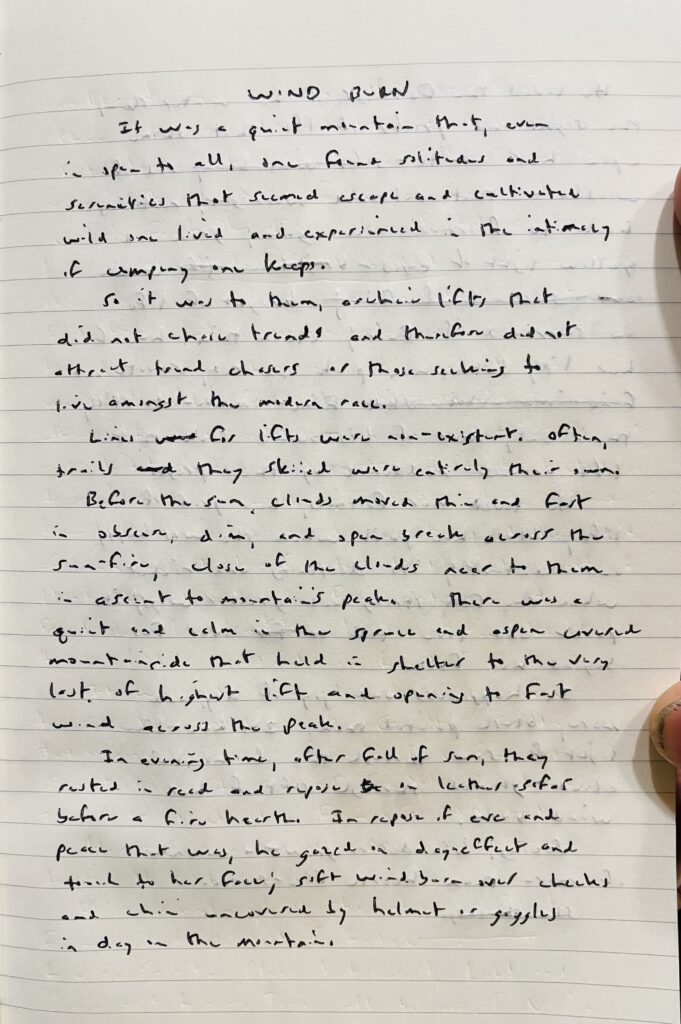 WIND BURN
It was a quiet mountain that, even
in open to all, one found solitudes and
serenities that seemed escape and cultivated
wild one lived and experienced in the intimacy
if company one keeps.
So it was to them, archaic lifts that
did not chase trends and therefore did not
attract trend chasers or those seeking to
live amongst the modern race.
Lines for lifts were non-existent. Often,
trails they skiied were entirely their own.
Before the sun, clouds moved thin and fast
in obscure, dim, and open break across the
sun-fire, close of the clouds near to them
in ascent to mountain's peak. There was a
quiet and calm in the spruce and aspen covered
mountainside that held in shelter to the very
last of highest lift and opening to fast
wind across the peak.
In evening time, after fall of sun, they
rested in read and repose on leather sofas
before a fire hearth. In repose if eve and
peace that was, he gazed on day-effect and
touch to her face; soft wind burn over cheeks
and chin uncovered by helmet or goggles
in day on the mountain.